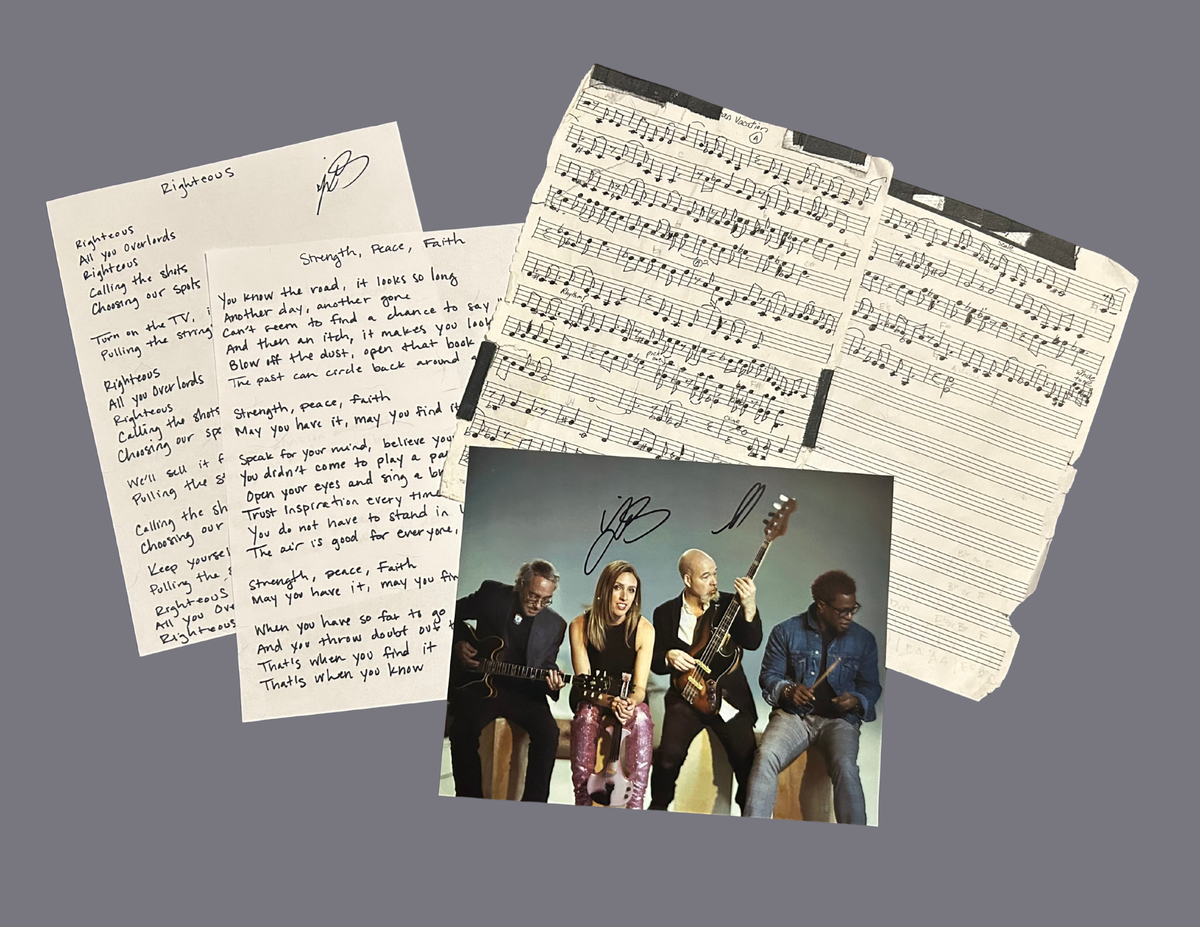 Righteous
Righteous
All you Overlords
Righteous
Calling the shots
Choosing our spots
Turn on the TV,
Pulling the string
Righteous
All you Overlords
Righteous
Calling the shots
Choosing our
We'll sell it
Pulling the
Calling the
Choosing our
Keep
Pulling the
Righteous
All you
Righteous
Strength, Peace, Faith
You know the road, it looks so long
Another day, another gone
Can't seem to find a chance to say
And then an itch, it makes you look
Blow off the dust, open that book
The past can circle back around
Strength, peace, faith
May you have it, may you find it
Speak for your mind, believe you
You didn't come to play a
Open your eyes and sing a
Trust Inspiration every time
You do not have to stand in
The air is good for everyone,
Strength, peace, Faith
May you have it, may you
When you have so far to go
And you throw doubt out
That's when you find it
That's when you know
Vacation
A